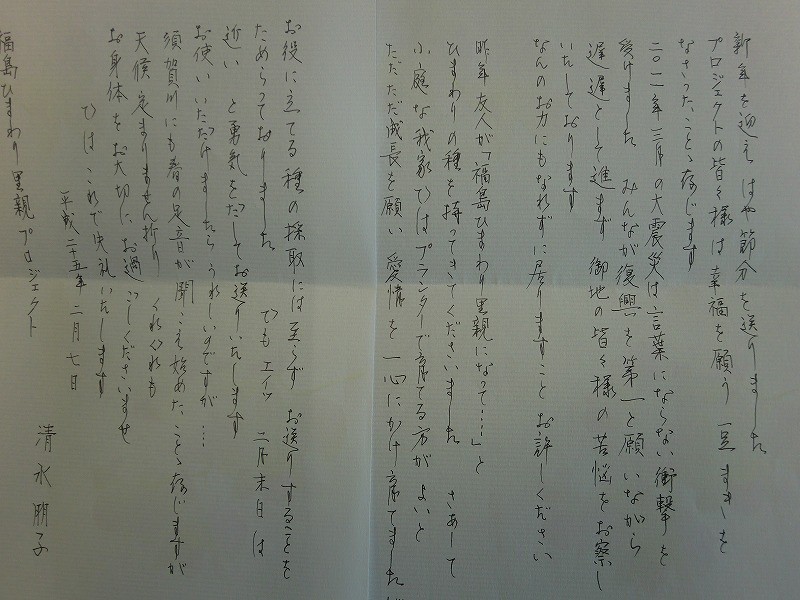 新年を迎え はや節分を送りました
プロジェクトの皆々様は幸福を願う 一豆まきを
なさったことゝ存じます
二〇一一年三月の大震災は言葉にならない衝撃を
受けました みんなが復興を第一と願いながら
遅遅として進まず 御地の皆々様の苦悩をお察し
いたしております
なんのお力にもなれずに居りますこと お許しください
昨年友人が「福島ひまわり里親になって…」と
ひまわりの種を持ってきてくださいました さあーて
小庭な我家ではプランターで育てる方がよいと
ただただ成長を願い 愛情を一心にかけ育てましたが
お役に立てる種の採取には至らず お送りすることを
ためらっておりました でもエイッ 二月末日は
近い と勇気をだしてお送りいたします
お使いいただけましたら うれしいのですが…
須賀川にも春の足音が聞こえ始めたことゝ存じますが
天候定まりません折り くれぐれも
お身体をお大切に お過ごしくださいませ
ではこれで失礼いたします
平成二十五年 二月七日
清水朋子
福島ひまわり里親プロジェクト